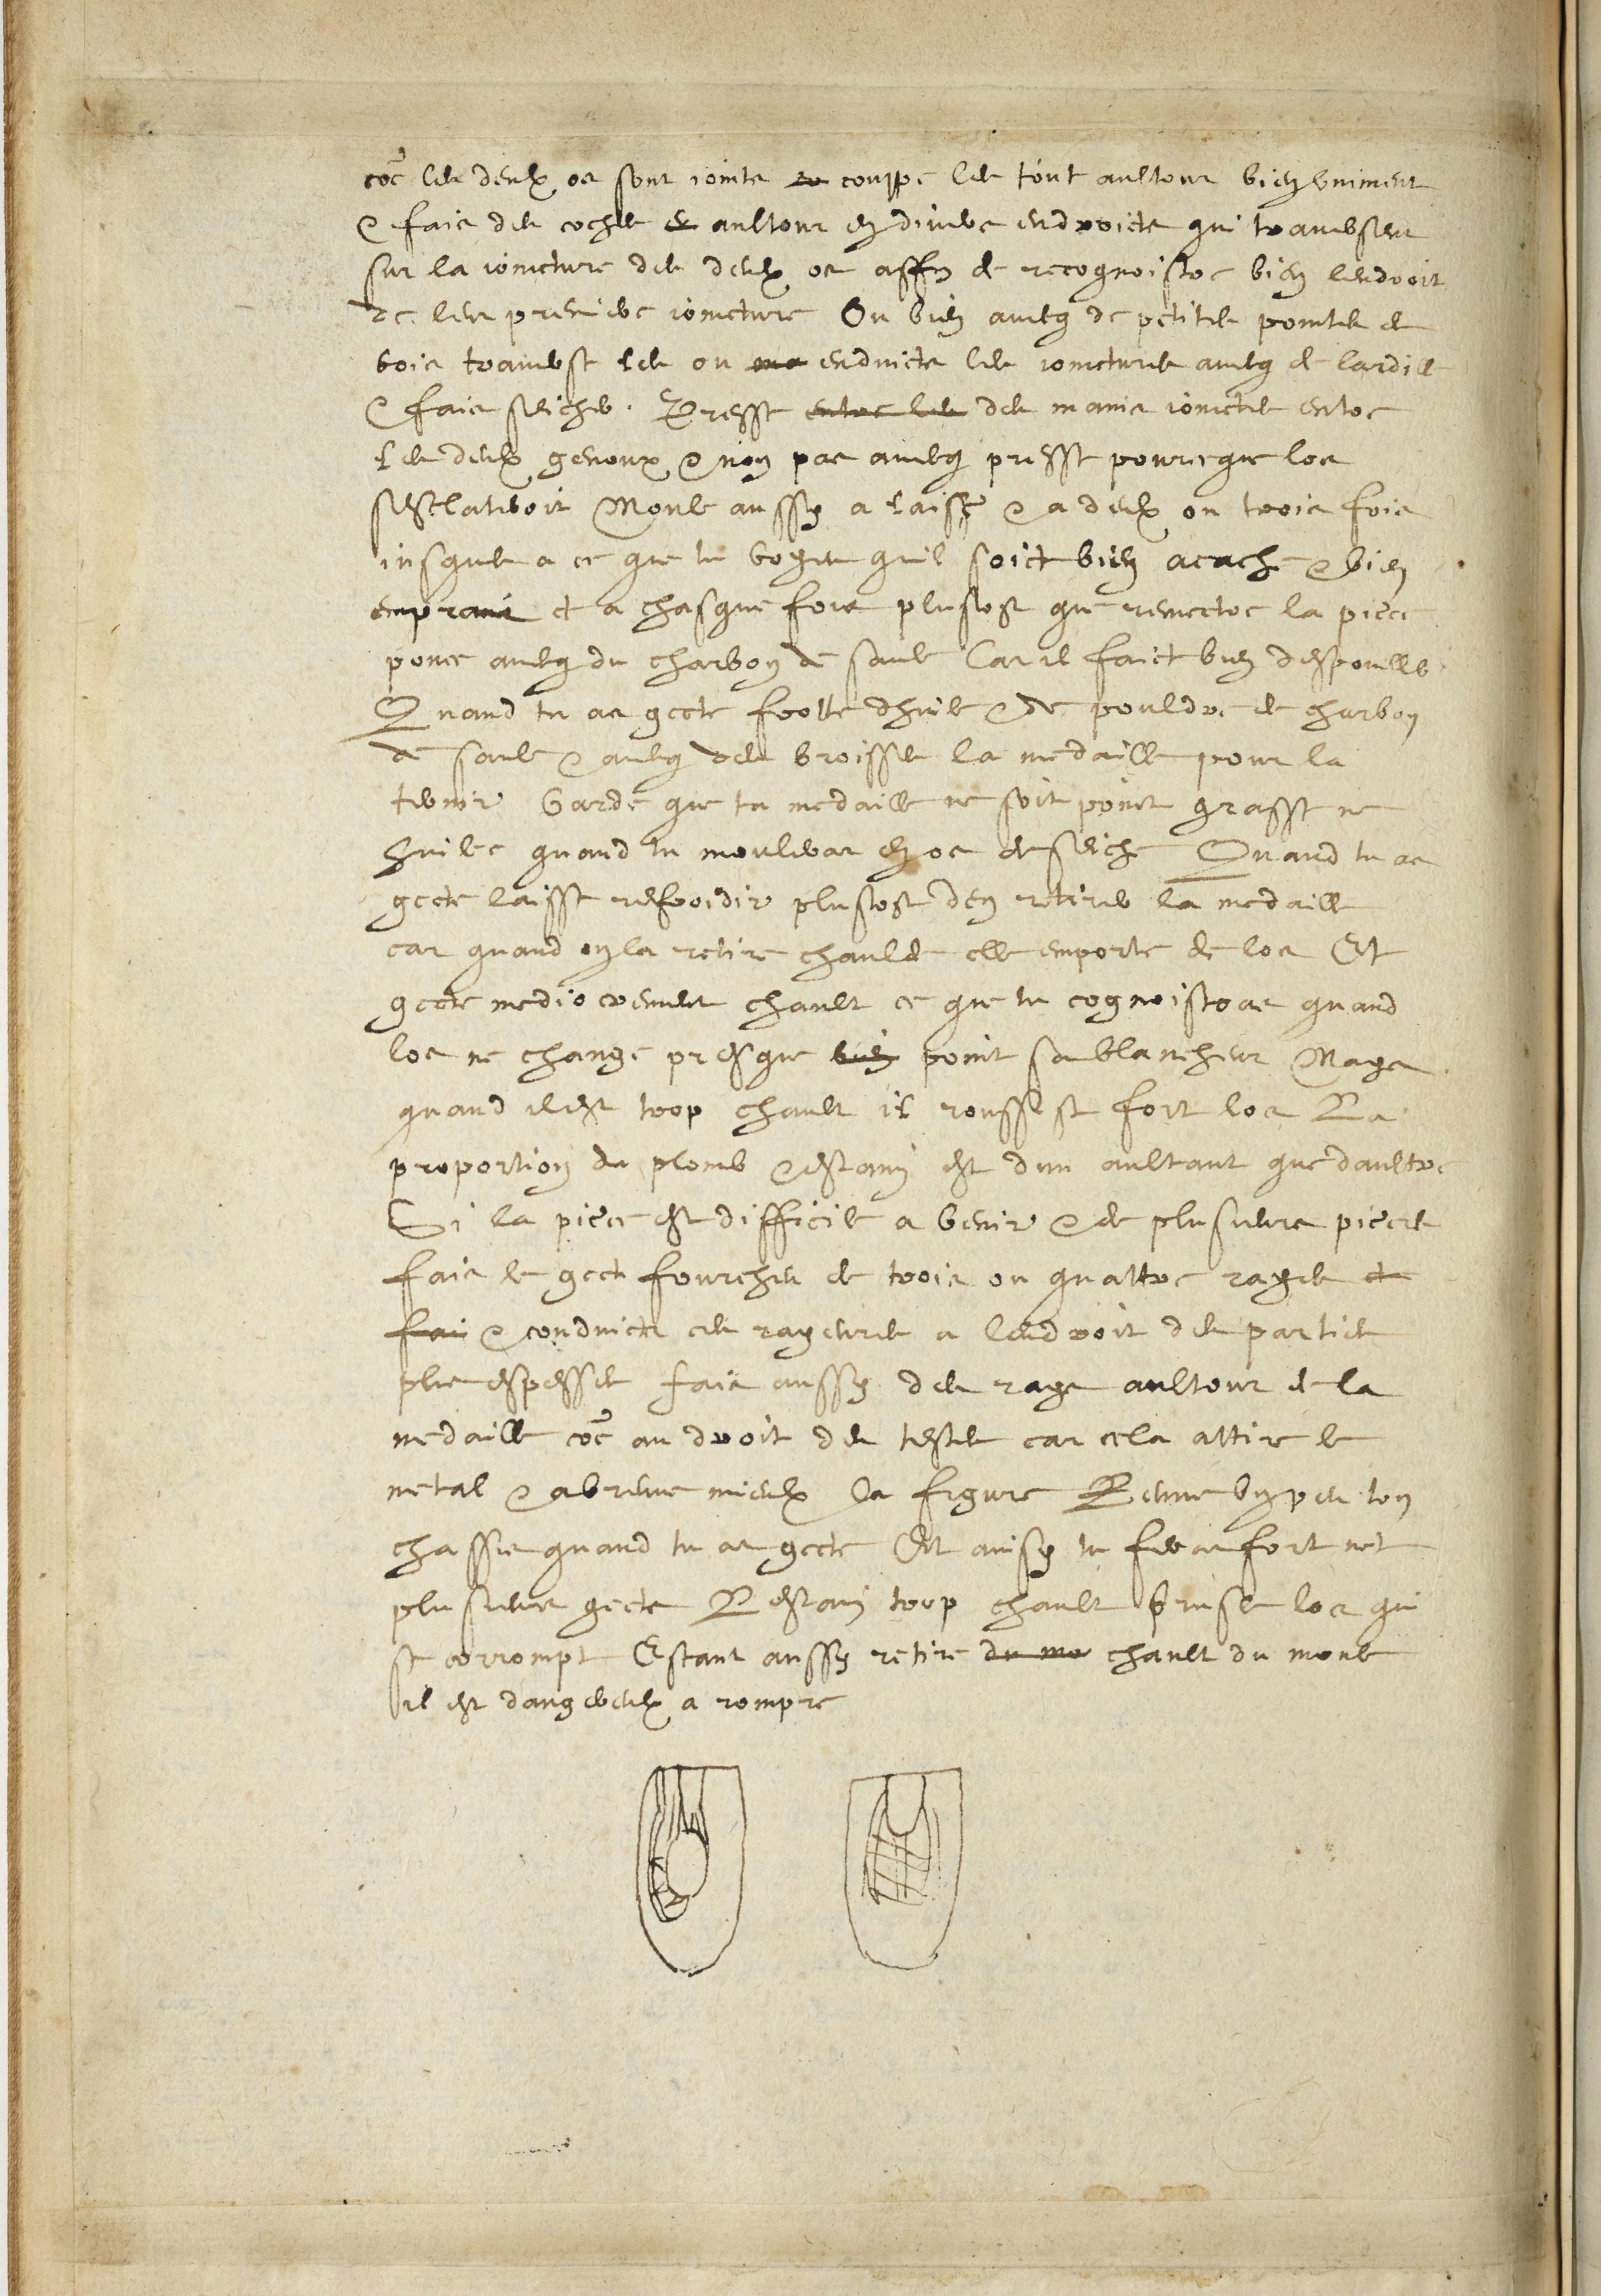 coe les deulx os sont joincts co couppe les tout aultour bien uniment
& fais des coches es aultour en divers endroicts qui traversent
sur la joincture des deulx os affin de recognoistre bien lendroit
de leur premiere joincture Ou bien avecq de petites pointes de
bois traverse les ou ens enduicts les joinctures avecq de lardille
& fais seicher. Presse entre les des mains joinctes entre
les deulx genoux & non pas avecq presse pourceque los
sesclateroit Moule aussy a laise & a deulx ou trois fois
jusques a ce que tu voyes quil soict bien acache & bien
empraint et a chasque fois plustost que remectre la piece
ponce avecq du charbon de saule Car il faict bien despouiller
Quand tu as gecte frotte dhuile & de pouldre de charbon
de saule & avecq des broisses la medaille pour la
ternir Garde que ta medaille ne soit poinct grasse ne
huilee quand tu mouleras en os de seiche Quand tu as
gecte laisse refroidir plustost den retirer la medaille
car quand on la retire chaulde elle emporte de los Et
gecte mediocrement chault ce que tu cognoistras quand
los ne change presque bien point sa blancheur Mays
quand il est trop chault il roussist fort los La
proportion du plomb & estain est dun aultant que daultre
Si la piece est difficile a venir & de plusieurs pieces
fais le gect fourcheu de trois ou quattre rayes et
fai & conduicts ces rayeures a lendroit des parties
plus espesses fais aussy des rays aultour de la
medaille coe au droit des testes car cela attire le
metal & abreuve mieulx la figure Remue un peu ton
chassis quand tu as gecte Et ainsy tu feras fort net
plusieurs gects Lestain trop chault brusle los qui
se corrompt Estant aussy retire du mo chault du moule
il est dangereulx a rompre